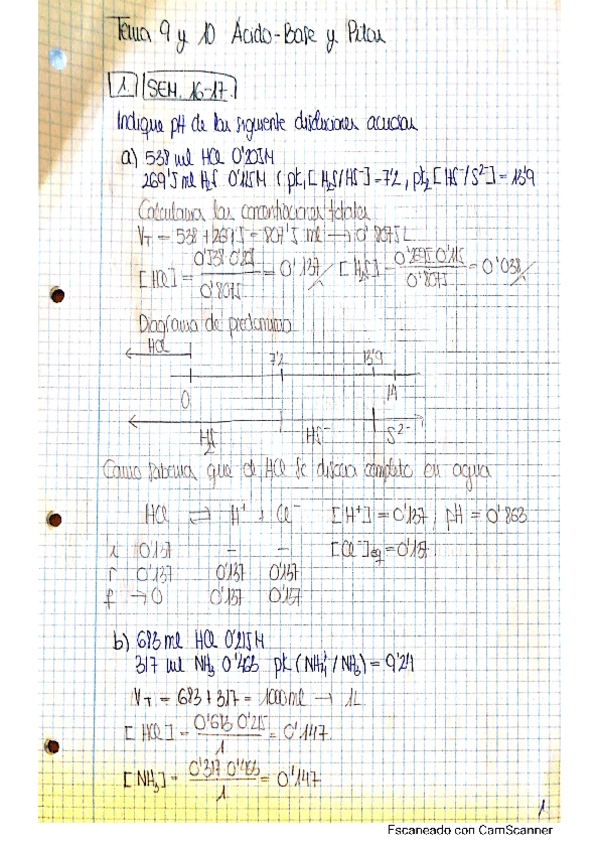 Tema 9 y 10 Ácido-Base y Pilas
1 SEM. 16-17
Indique pH de las siguiente disoluciones acuosas
a) 538 ml HCl 0'205M
269'5 ml H₂S 0'115M ( pk₁ [H₂S/HS⁻] = 7'2 , pk₂ [HS⁻/S²⁻] = 13'9
Calculamos las concentraciones totales
V_T = 538 + 269'5 = 807'5 ml → 0'8075 L
[HCl] = 0'538 · 0'205 / 0'8075 = 0'137 [H₂S] = 0'2695 · 0'115 / 0'8075 = 0'038
Diagrama de predominio
HCl
7'2 13'9
0 14
H₂S HS⁻ S²⁻
Como sabemos que el HCl se disocia completo en agua
HCl ⇌ H⁺ + Cl⁻ [H⁺] = 0'137 ; pH = 0'863
i 0'137 - - [Cl⁻]eq = 0'137
r 0'137 0'137 0'137
f → 0 0'137 0'137
b) 683 ml HCl 0'215M
317 ml NH₃ 0'463 pk (NH₄⁺/NH₃) = 9'24
V_T = 683 + 317 = 1000 ml → 1L
[HCl] = 0'683 0'215 / 1 = 0'147
[NH₃] = 0'317 0'463 / 1 = 0'147
1
Escaneado con CamScanner